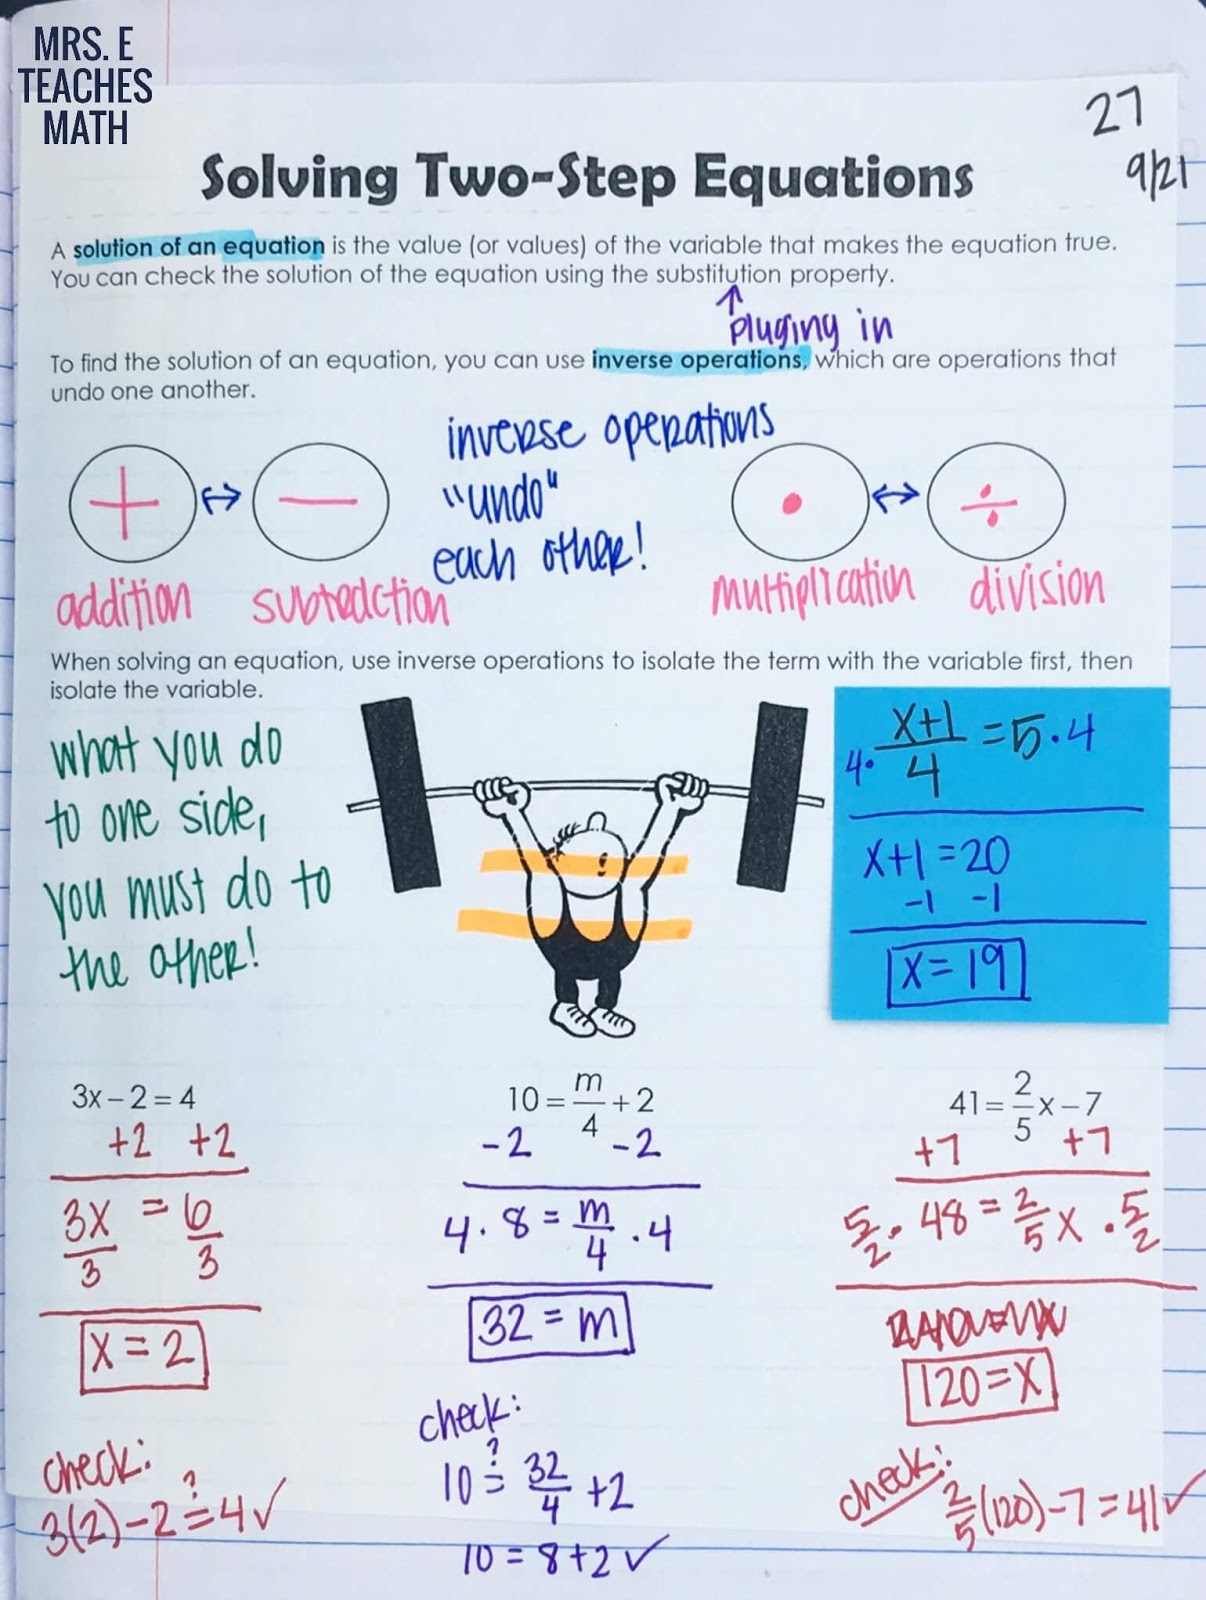 MRS. E
TEACHES
MATH
27
9/21
Solving Two-Step Equations
A solution of an equation is the value (or values) of the variable that makes the equation true.
You can check the solution of the equation using the substitution property.
↑
pluging in
To find the solution of an equation, you can use inverse operations, which are operations that
undo one another.
inverse operations
"undo"
each other!
+ ↔ −
• ↔ ÷
addition subtraction
multiplication division
When solving an equation, use inverse operations to isolate the term with the variable first, then
isolate the variable.
what you do
to one side,
you must do to
the other!
4 · (x+1)/4 = 5 · 4
x+1 = 20
-1 -1
x = 19
3x − 2 = 4
+2 +2
3x/3 = 6/3
x = 2
check:
3(2) − 2 ≟ 4 ✓
10 = m/4 + 2
-2 -2
4 · 8 = m/4 · 4
32 = m
check:
10 ≟ 32/4 + 2
10 = 8 + 2 ✓
41 = 2/5 x − 7
+7 +7
5/2 · 48 = 2/5 x · 5/2
120 = x
check:
2/5 (120) − 7 = 41 ✓